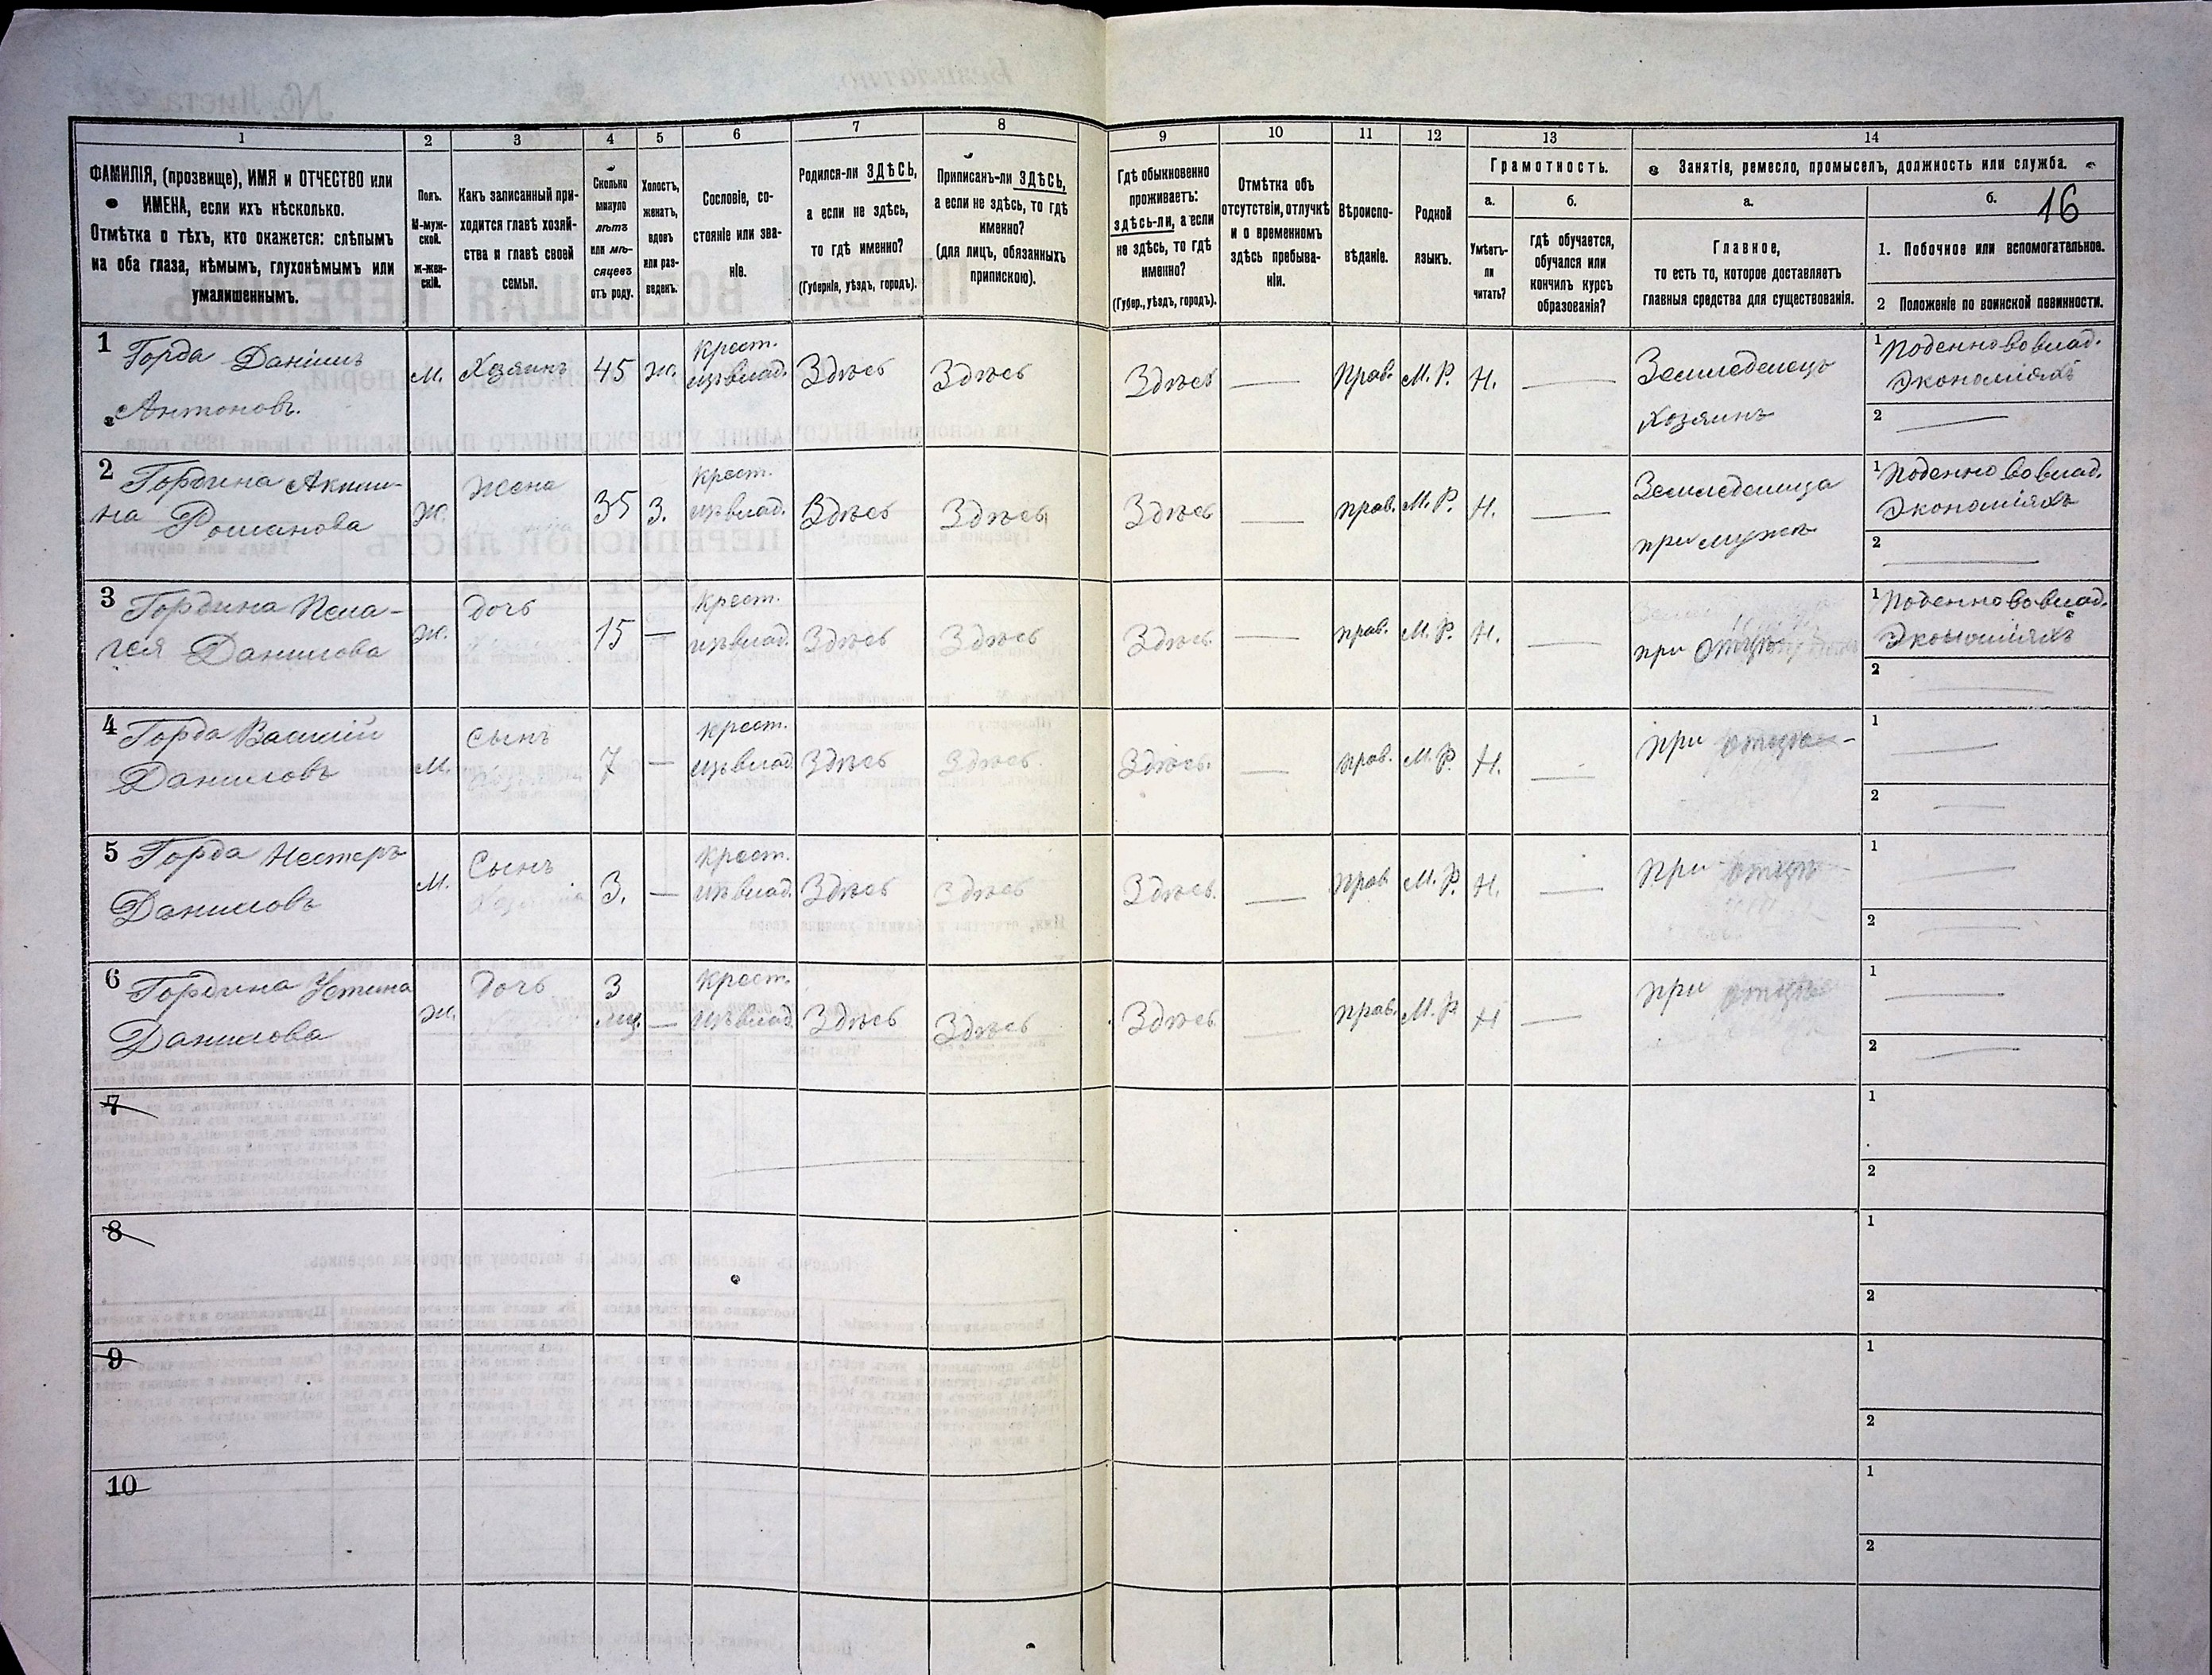 1 2 3 4 5 6 7 8 9 10 11 12 13 14
ФАМИЛІЯ, (прозвище), ИМЯ и ОТЧЕСТВО или
ИМЕНА, если ихъ нѣсколько.
Отмѣтка о тѣхъ, кто окажется: слѣпымъ
на оба глаза, нѣмымъ, глухонѣмымъ или
умалишеннымъ.
Полъ.
М-муж-
ской.
Ж-жен-
скій.
Какъ записанный при-
ходится главѣ хозяй-
ства и главѣ своей
семьи.
Сколько
минуло
лѣтъ
или мѣ-
сяцевъ
отъ роду.
Холостъ,
женатъ,
вдовъ
или раз-
веденъ.
Сословіе, со-
стояніе или зва-
ніе.
Родился-ли ЗДѢСЬ,
а если не здѣсь,
то гдѣ именно?
(Губернія, уѣздъ, городъ).
Приписанъ-ли ЗДѢСЬ,
а если не здѣсь, то гдѣ
именно?
(для лицъ, обязанныхъ
припискою).
Гдѣ обыкновенно
проживаетъ:
здѣсь-ли, а если
не здѣсь, то гдѣ
именно?
(Губер., уѣздъ, городъ).
Отмѣтка объ
отсутствіи, отлучкѣ
и о временномъ
здѣсь пребыва-
ніи.
Вѣроиспо-
вѣданіе.
Родной
языкъ.
Грамотность.
а.
Умѣетъ-
ли
читать?
б.
гдѣ обучается,
обучался или
кончилъ курсъ
образованія?
Занятіе, ремесло, промыселъ, должность или служба.
а.
Главное,
то есть то, которое доставляетъ
главныя средства для существованія.
б.
16
1. Побочное или вспомогательное.
2 Положеніе по воинской повинности.
1 Горда Даніилъ
Антоновъ.
М. Хозяинъ 45 ж.
Крест.
изъ влад.
Здѣсь Здѣсь Здѣсь — Прав. М. Р. Н. —
Земледелецъ
Хозяинъ
1 Поденно во влад.
Экономіяхъ
2 —
2 Гордина Акили-
на Романова
Ж. Жена 35 З.
Крест.
изъ влад.
Здѣсь Здѣсь Здѣсь — прав. М. Р. Н. —
Земледелица
при мужѣ
1 Поденно во влад.
Экономіяхъ
2 —
3 Гордина Пела-
гея Данилова
Ж. Дочь 15 —
Крест.
изъ влад.
Здѣсь Здѣсь Здѣсь — прав. М. Р. Н. —
при отцѣ
1 Поденно во влад.
Экономіяхъ
2 —
4 Горда Василій
Даниловъ
М. Сынъ 7 —
Крест.
изъ влад.
Здѣсь Здѣсь Здѣсь. — прав. М. Р. Н. —
при отцѣ
1 —
2 —
5 Горда Нестеръ
Даниловъ
М. Сынъ 3. —
Крест.
изъ влад.
Здѣсь Здѣсь Здѣсь. — прав М. Р. Н. —
При отцѣ
1 —
2 —
6 Гордина Устина
Данилова
Ж. Дочь 3
мц. —
Крест.
изъ влад.
Здѣсь Здѣсь Здѣсь — прав. М. Р. Н —
при отцѣ
1 —
2 —
7
1
2
8
1
2
9
1
2
10
1
2